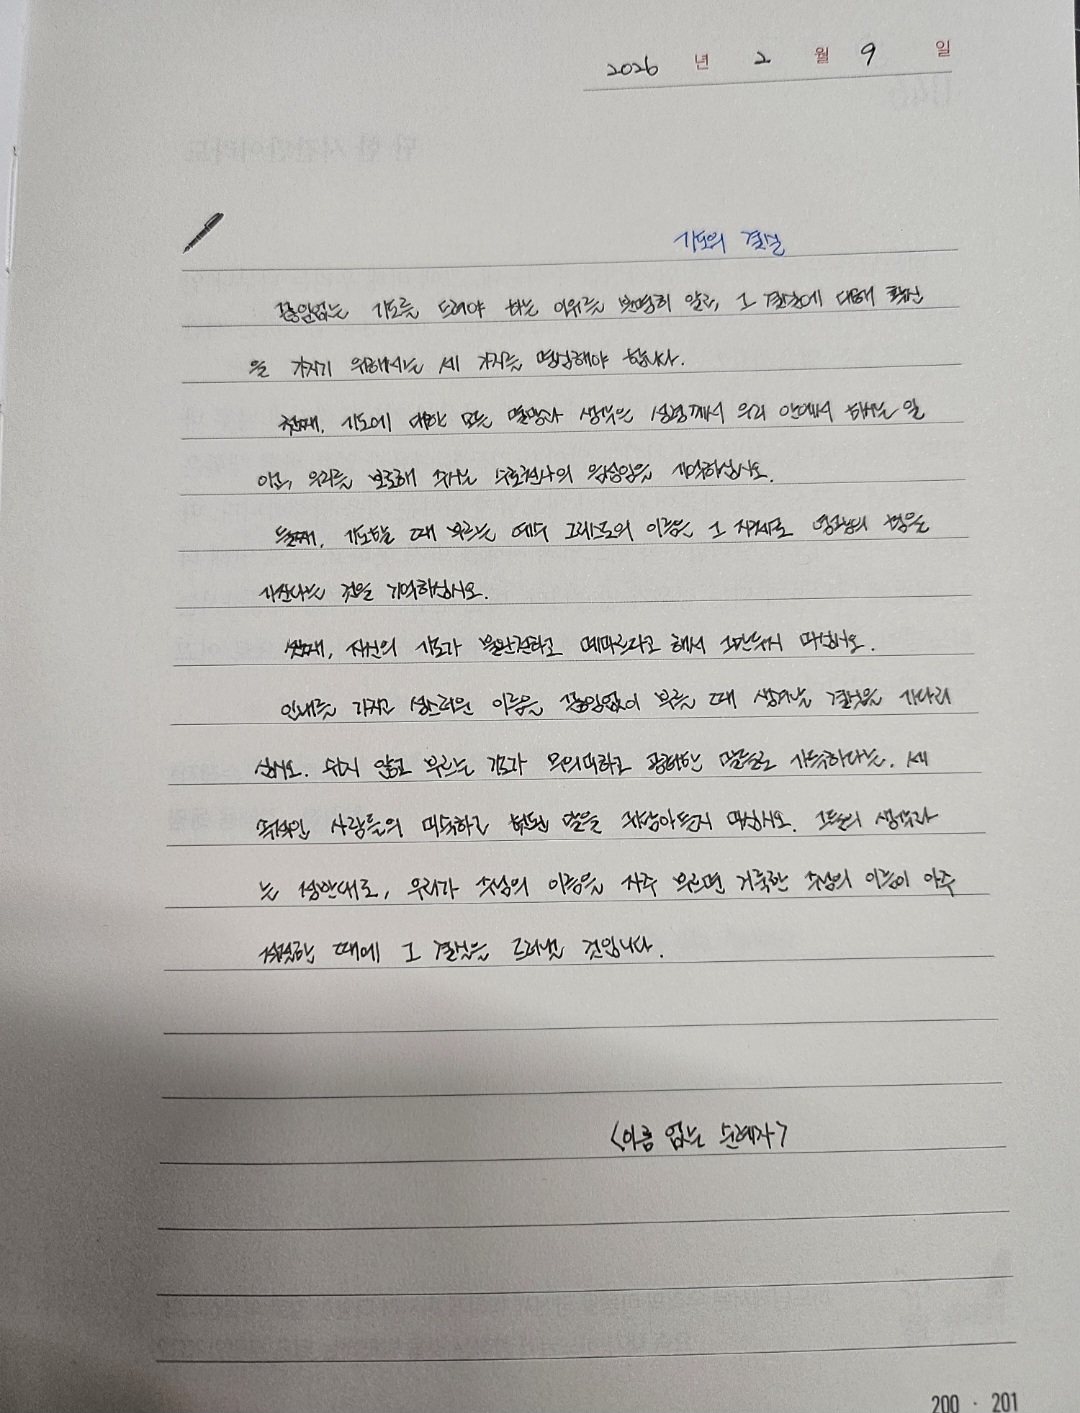 2026 년 2 월 9 일
기도의 결실
끊임없는 기도를 드려야 하는 이유를 분명히 알고, 그 결실에 대해 확신
을 가지기 위해서는 세 가지를 명심해야 합니다.
첫째, 기도에 대한 모든 열망과 생각은 성령께서 우리 안에서 하시는 일
이고, 우리를 보호해 주시는 수호천사의 음성임을 기억하십시오.
둘째, 기도할 때 부르는 예수 그리스도의 이름은 그 자체로 영광의 힘을
가진다는 것을 기억하십시오.
셋째, 자신의 기도가 불완전하고 메마르다고 해서 그만두지 마십시오.
인내를 가지고 성스러운 이름을 끊임없이 부를 때 생겨나는 결실을 기다리
십시오. 쉬지 않고 부르는 것과 무의미하고 공허한 말들로 가득하다는, 세
속적인 사람들의 미숙하고 헛된 말을 귀담아듣지 마십시오. 그들의 생각과
는 정반대로, 우리가 주님의 이름을 자주 부르면 거룩한 주님의 이름이 아주
적절한 때에 그 결실을 드러낼 것입니다.
<이름 없는 순례자>
200 · 201